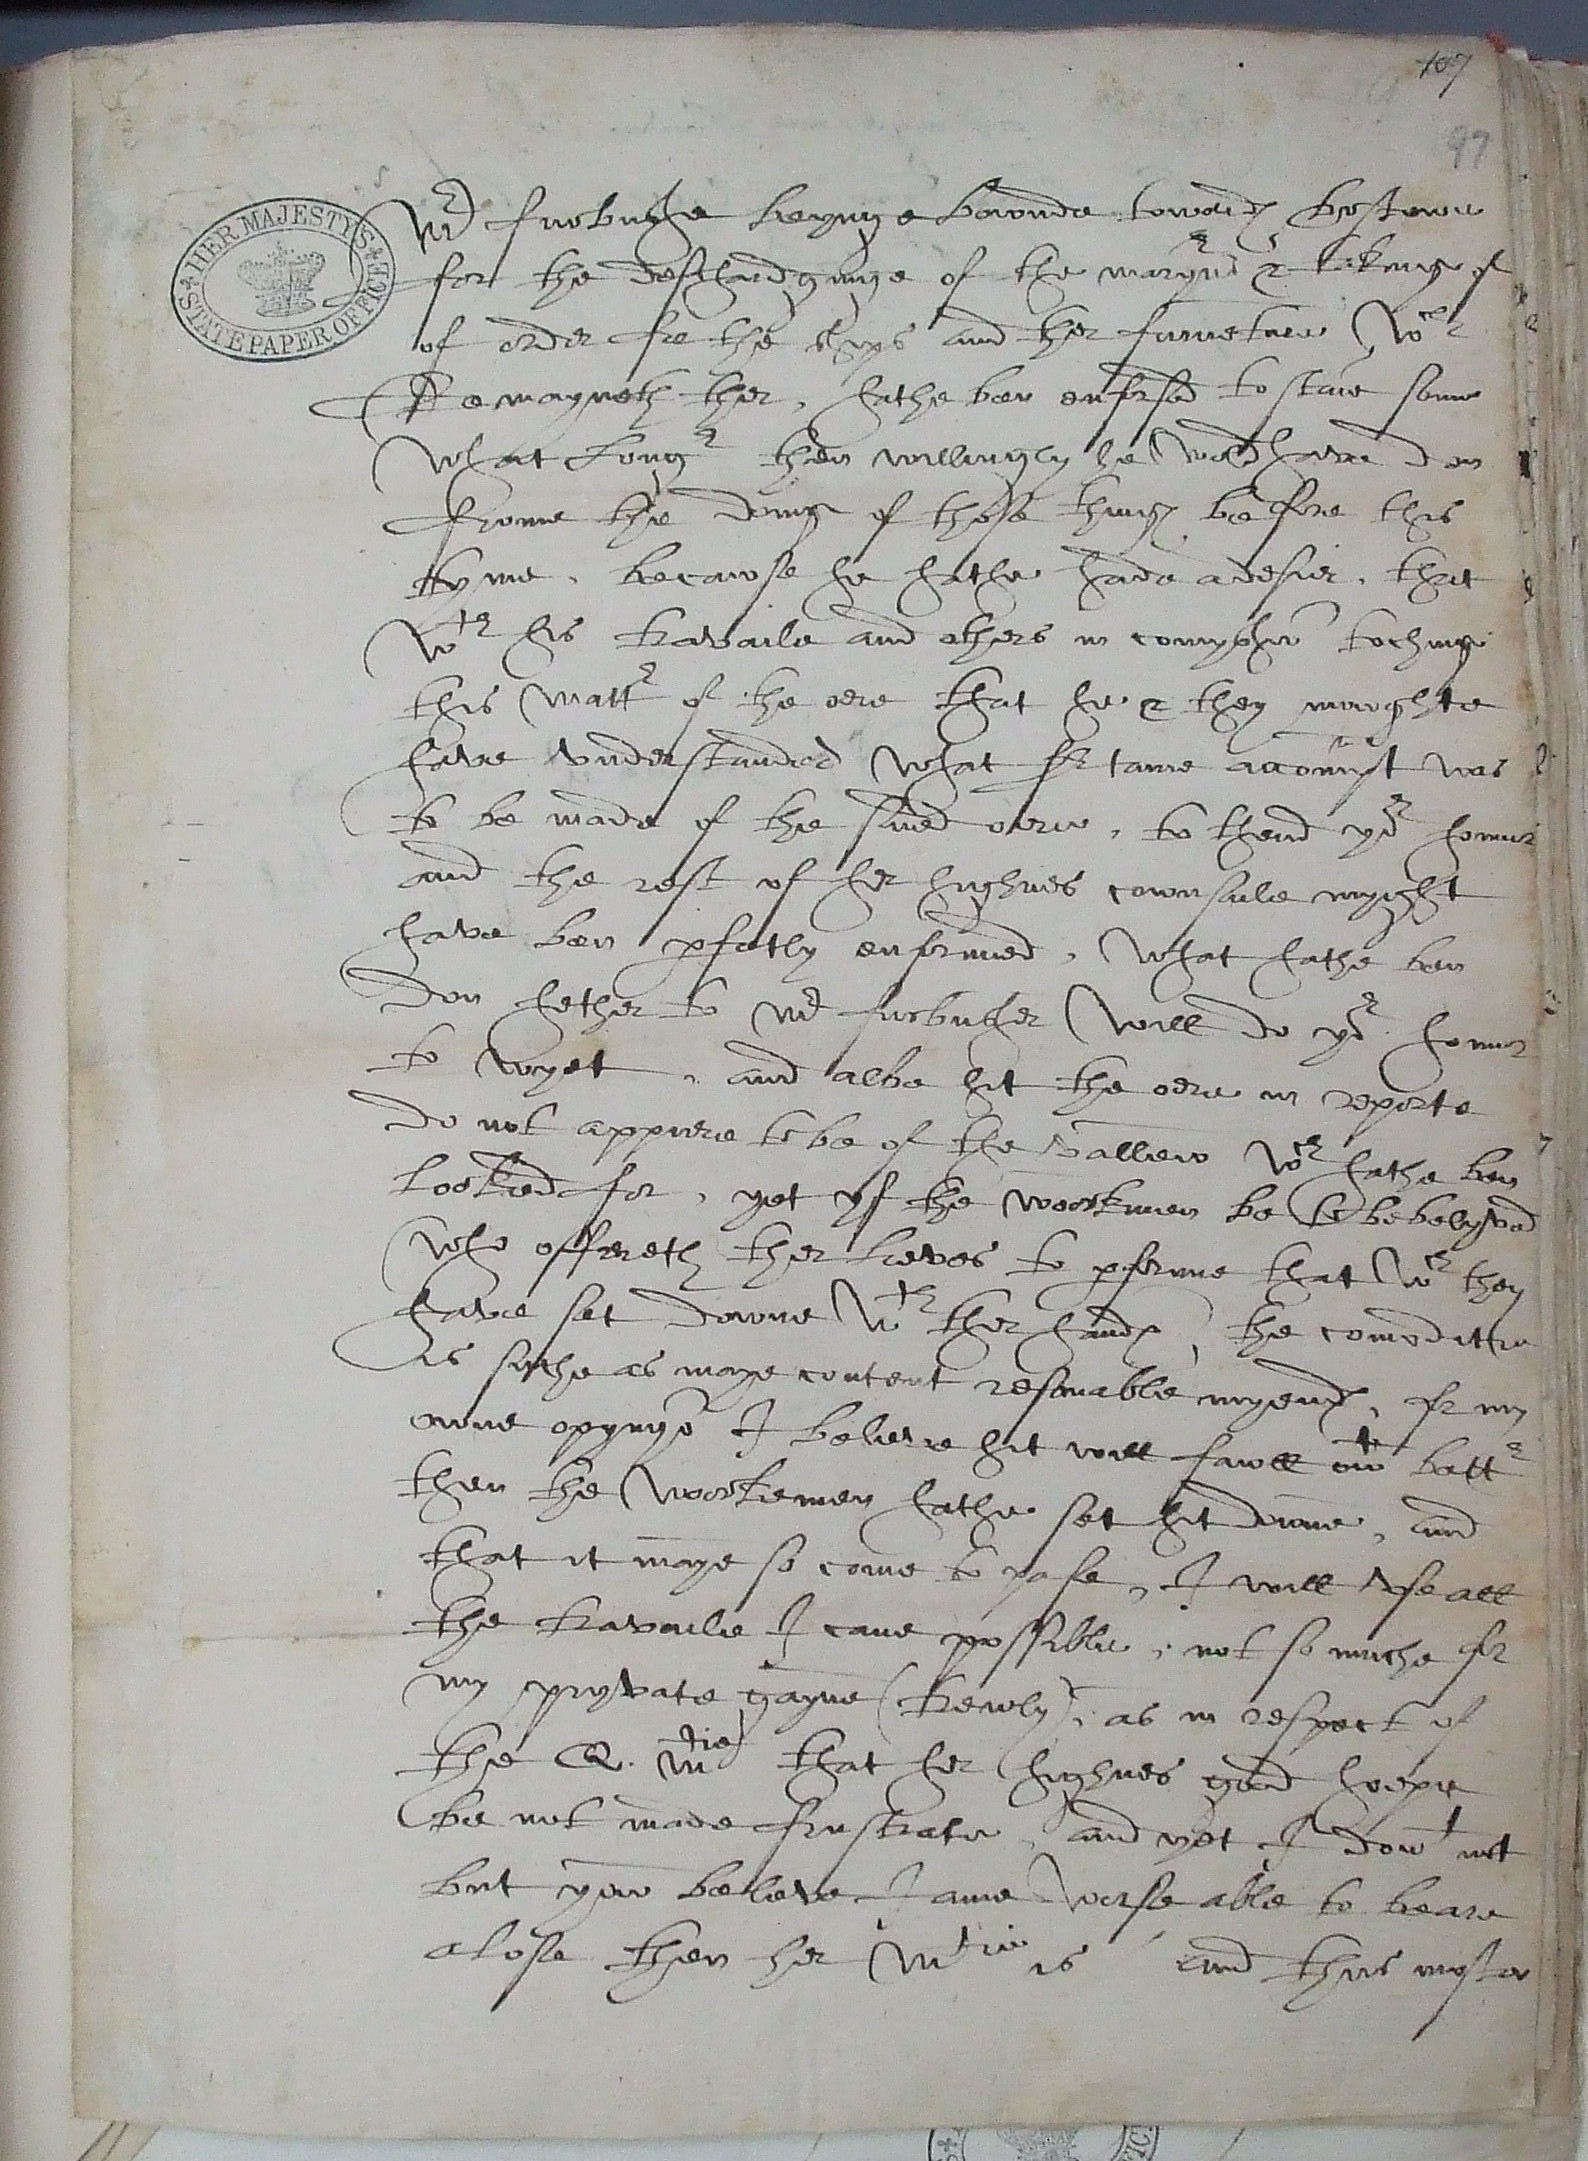 107
97
HER MAJESTY'S STATE PAPER OFFICE
Mr furbusher beynge bounde towardes brstowe
for the deschardgynge of the maryners & takinge of
of order for the ships and ther furneture wch
Remayneth ther, hathe ben enforsed to staie some
what longr then willingly he wold have don
frome the doing of those thinges before this
tyme, becawse he hathe hade a desier, that
wth his travaile and others in compyhu tochinge
this mattr of the ore that he & they moughte
have understanded what sertaine accompt was
to be made of the sued oere, to thend yor honnur
and the rest of her highnes counsale myght
have ben pfetly enformed, what hathe ben
don hether to Mr furbusher will do yor honnur
to wyet, and albe hit the oere in reporte
do not appiere to be of the vallew wch hathe ben
looked for, yet yf the workmen be to be belyved
who offereth ther lieves to pforme that wch they
have set downe wth ther handes, the comoditie
is suche as maye content resonable myendes, for my
owne opynyo I beleve hit will fawll owt bettr
then the workemen hathe set hit downe, and
that it maye so come to pase, I will use all
the travaile I cane possible, not so muche for
my pryvate gayne (trewly), as in respect of
the Q. Mtie that her highnes good hoepe
be not made frustrate, and yet I dowt not
but yow beleve I ame worse able to beare
a lose then her Mtie is and thus myster